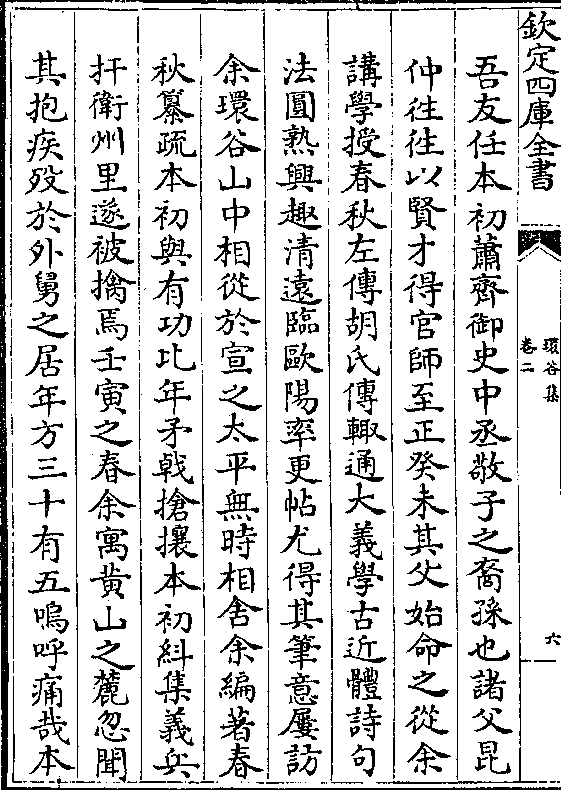 欽定四庫全書
環谷集
卷二
六
吾友任本初蕭齊御史中丞敬子之裔孫也諸父昆
仲徃徃以賢才得官師至正癸未其父始命之從余
講學授春秋左傳胡氏傳輙通大義學古近體詩句
法圓熟興趣清遠臨歐陽率更帖尤得其筆意屢訪
余環谷山中相從於宣之太平無時相舍余編著春
秋纂疏本初與有功比年矛戟搶攘本初糾集義兵
扞衛州里遂被擒焉壬寅之春余寓黄山之麓忽聞
其抱疾殁於外舅之居年方三十有五嗚呼痛哉本